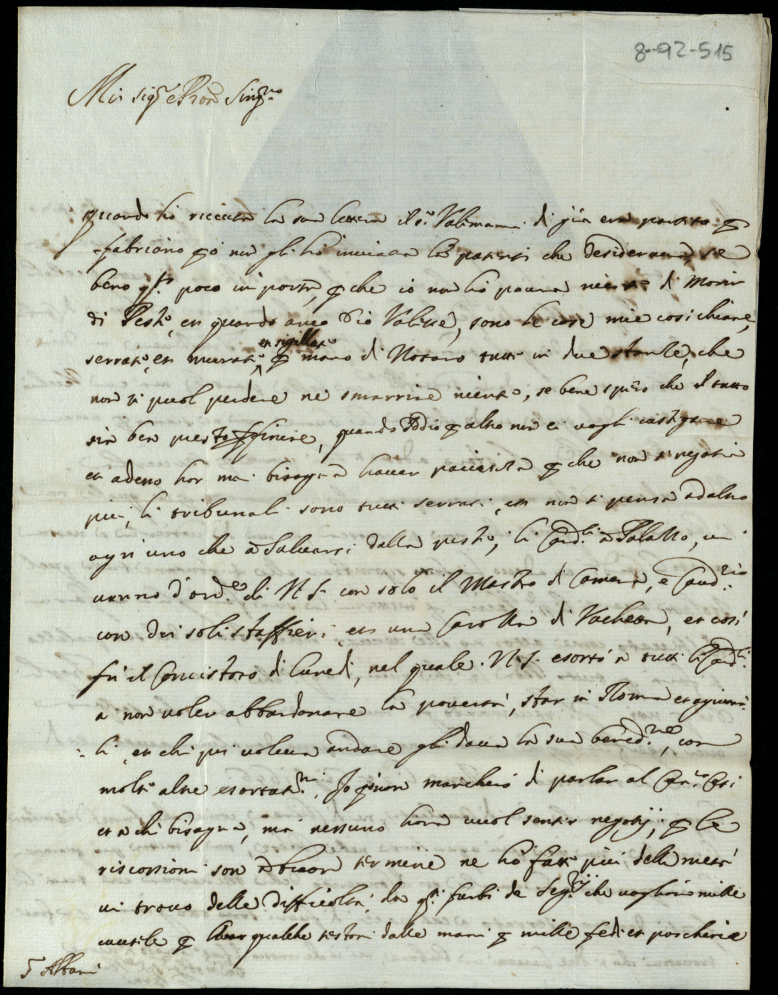 8-92-515
Mio sig.r e Pron Sing.mo
Quando ho ricevuta la sua lettera il s.r Valemanni di già era partito p
fabriano, p ò non gli ho inviata la patenti che desiderava se
bene q.to poco importa, p che io non ho paura niente di morir
di Peste, et quando anco Dio Volesse, sono le cose mie cosi chiare,
et sigillate
serrate, et murate p mano di Notaro tutte in due stantie, che
non si puol perdere ne smarrire niente, se bene spero che il tutto
sia ben presto p finire, quando Iddio p altro non ci vogli castigare
et adesso hor mai bisogna haver patientia p che non si negotia
piu, li tribunali sono tutti serrati, et non si pensa ad altro
ogni uno che à salvarsi dalla peste, li Card.li à Palazzo, vi
vanno d'ord.e di N.S. con solo il Mastro di Camera, e Caud.rio
con dui soli staffieri, et una Carozza di Vachetta, et cosi
fu il Concistoro di lunedi, nel quale N.S. esortò a tutti li Card.li
a non voler abbandonare la povertà, star in Roma et agiutar
li, et chi poi voleva andare gli dava la sua bened.ne, con
molte altre esortat.ni, Io p ò non mancherò di parlar al
et a chi bisogna, ma nessuno hora vuol sentir negotij, p le
riscossioni son à buon termine ne ho fatte piu della metà
vi trovo delle difficoltà, da q.ti furbi de Seg.rij che vogliono mille
p qualche testone dalle mani p mille fedi et porcherie
S Albani